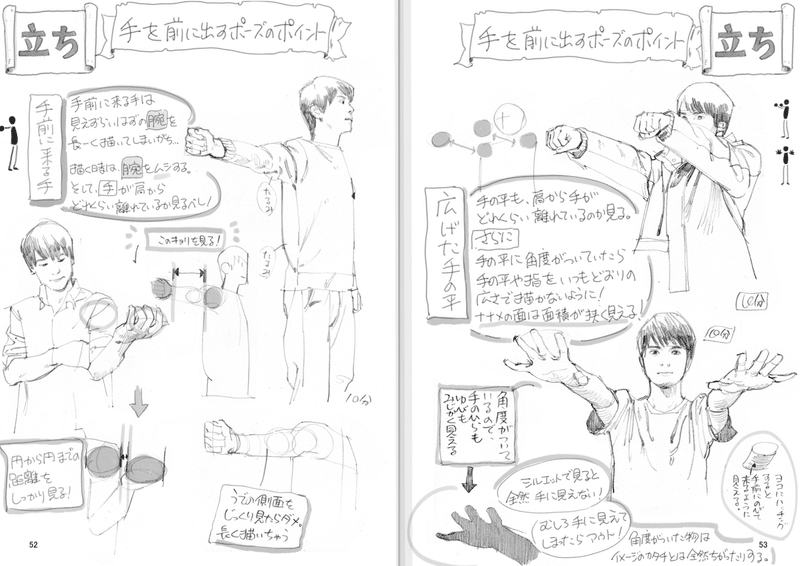 立ち
手を前に出すポーズのポイント
手前に来る手
手前に来る手は
見えずらいはずの腕を
長〜く描いてしまいがち…
描く時は、腕をムシする。
そして、手が肩から
どれくらい離れているか見るべし!
このキョリを見る!
たるみ
たるみ
10分
円から円までの
距離を
しっかり見る!
うでの側面を
じっくり見たらダメ。
長く描いちゃう
52
手を前に出すポーズのポイント
立ち
広げた手の平
手の平も、肩から手が
どれくらい離れているのか見る。
さらに
手の平に角度がついていたら
手の平や指をいつもどおりの
広さで描かないように!
ナナメの面は面積が狭く見える!
10分
10分
角度がついて
いるので
手のひらも
ゆびも
みじかく見える
シルエットで見ると
全然手に見えない!
むしろ手に見えて
しまったらアウト!
ヨコにハッチングが
すると
手前にのびて
来るように
見える。
角度がついた物は
イメージのカタチとは全然ちがったりする。
53